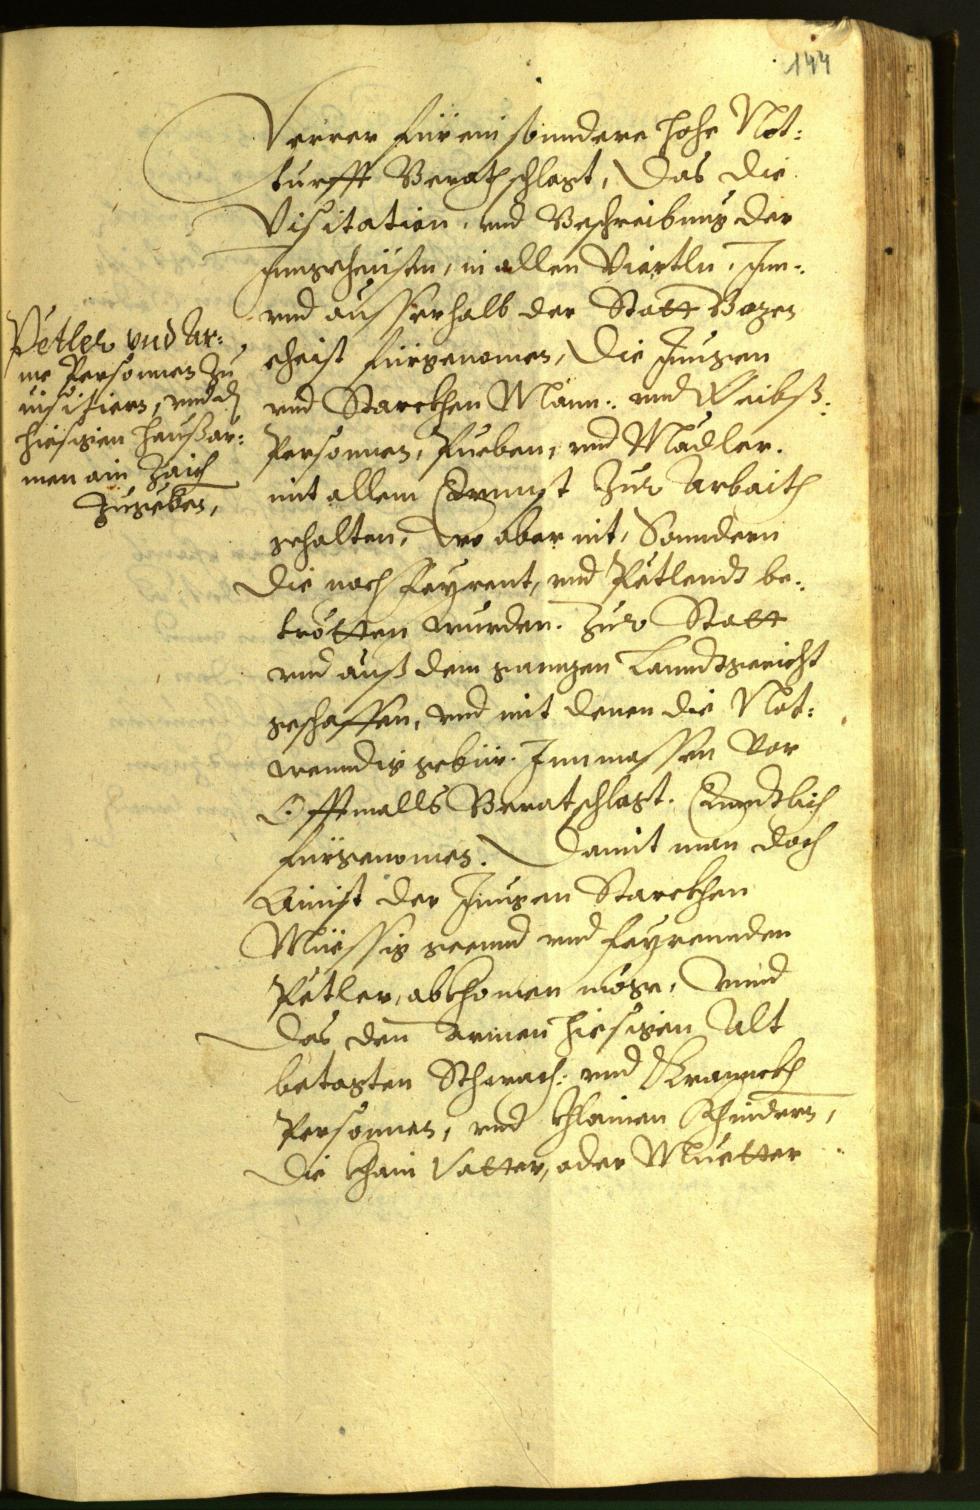 144
Verrer für ein sonndere hohe Not:
turfft Berathschlagt, Das die
Visitation, vnd Beschreibung der
Inngeheüsen, in allen Viertln, Inn-:
vnd ausserhalb der Statt Bozen
eheist fürgenomen, Die Jungen
vnd Starckhen Mann: vnd Weibß:
Personnen, Pueben, vnd Mädler.
mit allem Ernnst Zur Arbaith
gehalten, Wo aber nit, Sonndern
die noch Feyrent, vnd Petlendt be:
trötten wurden. Zur Statt
vnd auß dem ganngen Lanndtgericht
geschaffen, vnd mit denen die Not:
wenndig gebür. Inmassen vor
Offtmalls Beratschlagt. Enndtlich
fürgenomen. Damit man doch
Ainist der Jungen Starckhen
Müessig geennd vnd feyrennden
Petler, abkhomen möge, Vnnd
Das den armen hiesigen Alt
betagten Schwach: vnd Kranckh
Personnen, vnd khlainen Khindern,
die khain Vatter, oder Muetter
Petler vnd Ar:
me Personnen Zu
visitiern, vnd dn
hiesigen haußar:
men ain Zaich
Zugeben,